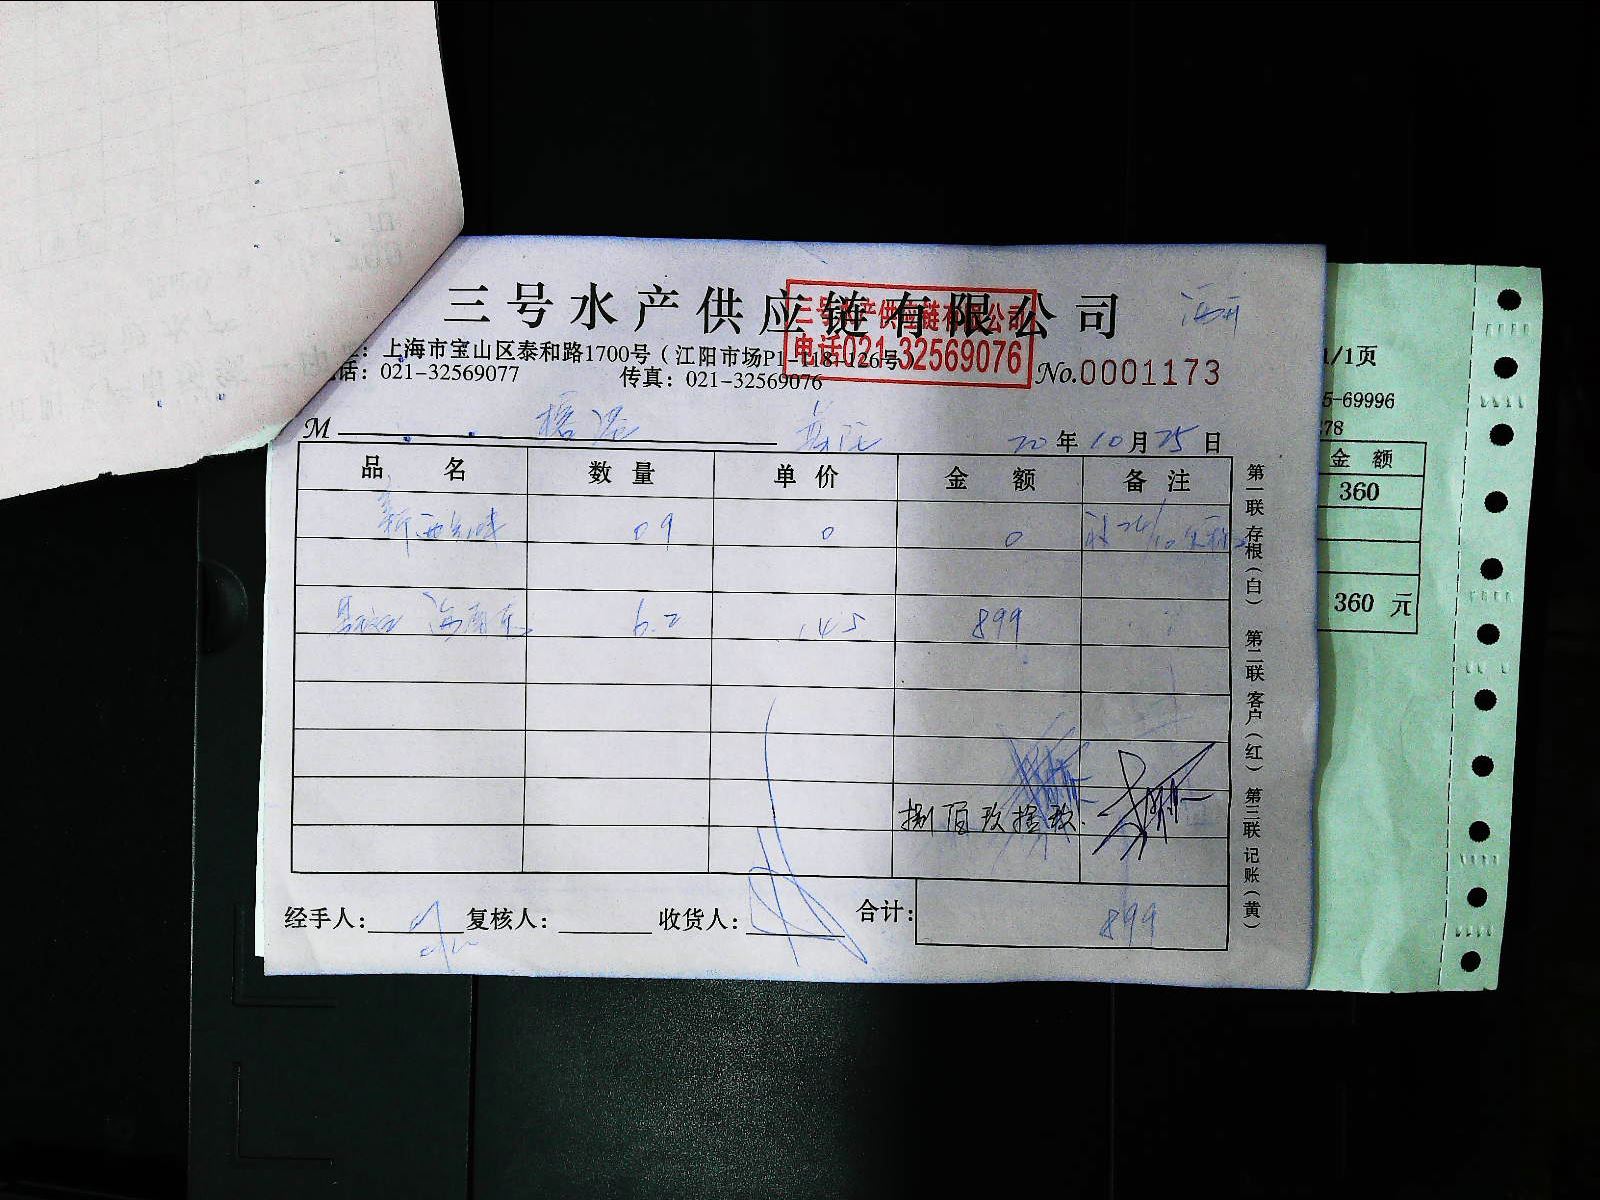 三号水产供应链有限公司
三号水产供应链有限公司
电话021-32569076
：上海市宝山区泰和路1700号（江阳市场P1-118-126号）
话：021-32569077 传真：021-32569076
No.0001173
M
20年10月25日
品名 数量 单价 金额 备注
新西兰 09 0 0
6.2 145 899
捌佰玖拾玖
经手人： 复核人： 收货人： 合计： 899
第一联 存根（白） 第二联 客户（红） 第三联 记账（黄）
1/1页
5-69996
78
金额
360
360 元